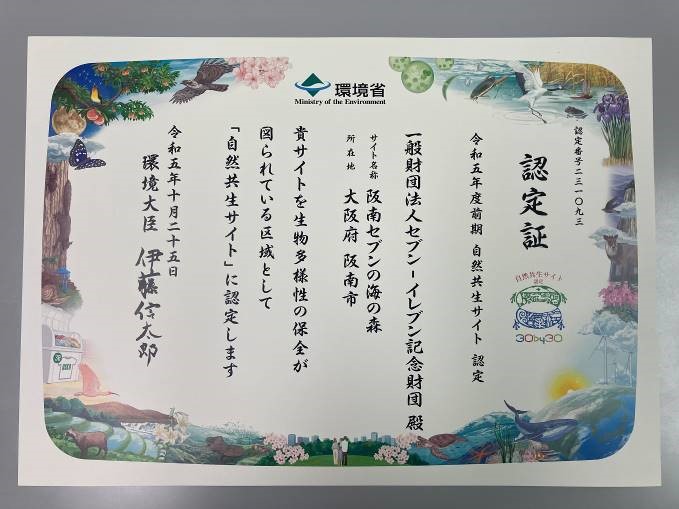 環境省
Ministry of the Environment
認定番号二三一〇九三
認定証
自然共生サイト
認定
30by30
令和五年度前期 自然共生サイト 認定
一般財団法人セブン-イレブン記念財団 殿
サイト名称 阪南セブンの海の森
所在地 大阪府 阪南市
貴サイトを生物多様性の保全が
図られている区域として
「自然共生サイト」に認定します
令和五年十月二十五日
環境大臣 伊藤信太郎